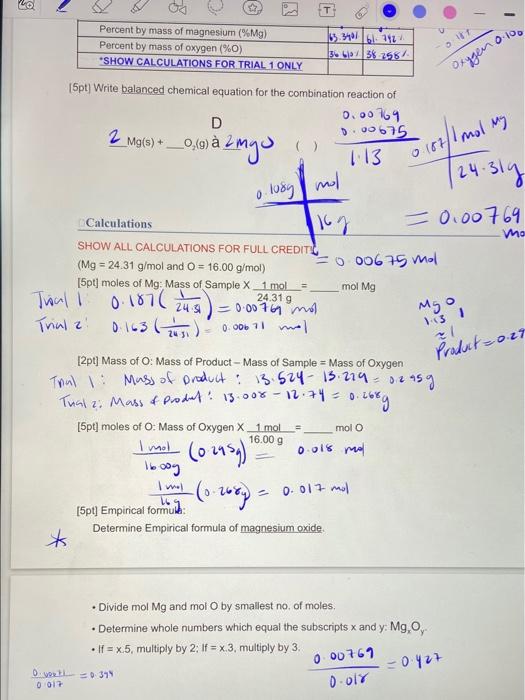 Percent by mass of magnesium (%Mg) 63.39% 61.742%
Percent by mass of oxygen (%O) 36.610% 38.258%
*SHOW CALCULATIONS FOR TRIAL 1 ONLY
oxygen 0.108
[5pt] Write balanced chemical equation for the combination reaction of
D
2 Mg(s) + __O₂(g) à 2mgO ( )
0.00769
0.00675
1.13
0.187 1 mol Mg
24.31g
= 0.00769
mo
0.108g mol
16g
= 0.00675 mol
Calculations
SHOW ALL CALCULATIONS FOR FULL CREDIT!
(Mg = 24.31 g/mol and O = 16.00 g/mol)
[5pt] moles of Mg: Mass of Sample X 1 mol = ____ mol Mg
24.31 g
Trial 1: 0.187 (1/24.31) = 0.00769 mol
Trial 2: 0.163 (1/24.31) = 0.00671 mol
MgO
1.13 1
≈1
Product = 0.29
[2pt] Mass of O: Mass of Product – Mass of Sample = Mass of Oxygen
Trial 1: Mass of product: 13.524 - 13.229 = 0.295g
Trial 2: Mass of product: 13.008 - 12.74 = 0.268g
[5pt] moles of O: Mass of Oxygen X 1 mol = ____ mol O
16.00 g
1 mol/16.00g (0.295g) = 0.018 mol
1 mol/16g (0.268g) = 0.017 mol
[5pt] Empirical formula:
* Determine Empirical formula of magnesium oxide.
• Divide mol Mg and mol O by smallest no. of moles.
• Determine whole numbers which equal the subscripts x and y: MgₓOᵧ.
• If = x.5, multiply by 2; If = x.3, multiply by 3.
0.00769/0.018 = 0.427
0.00671/0.017 = 0.394